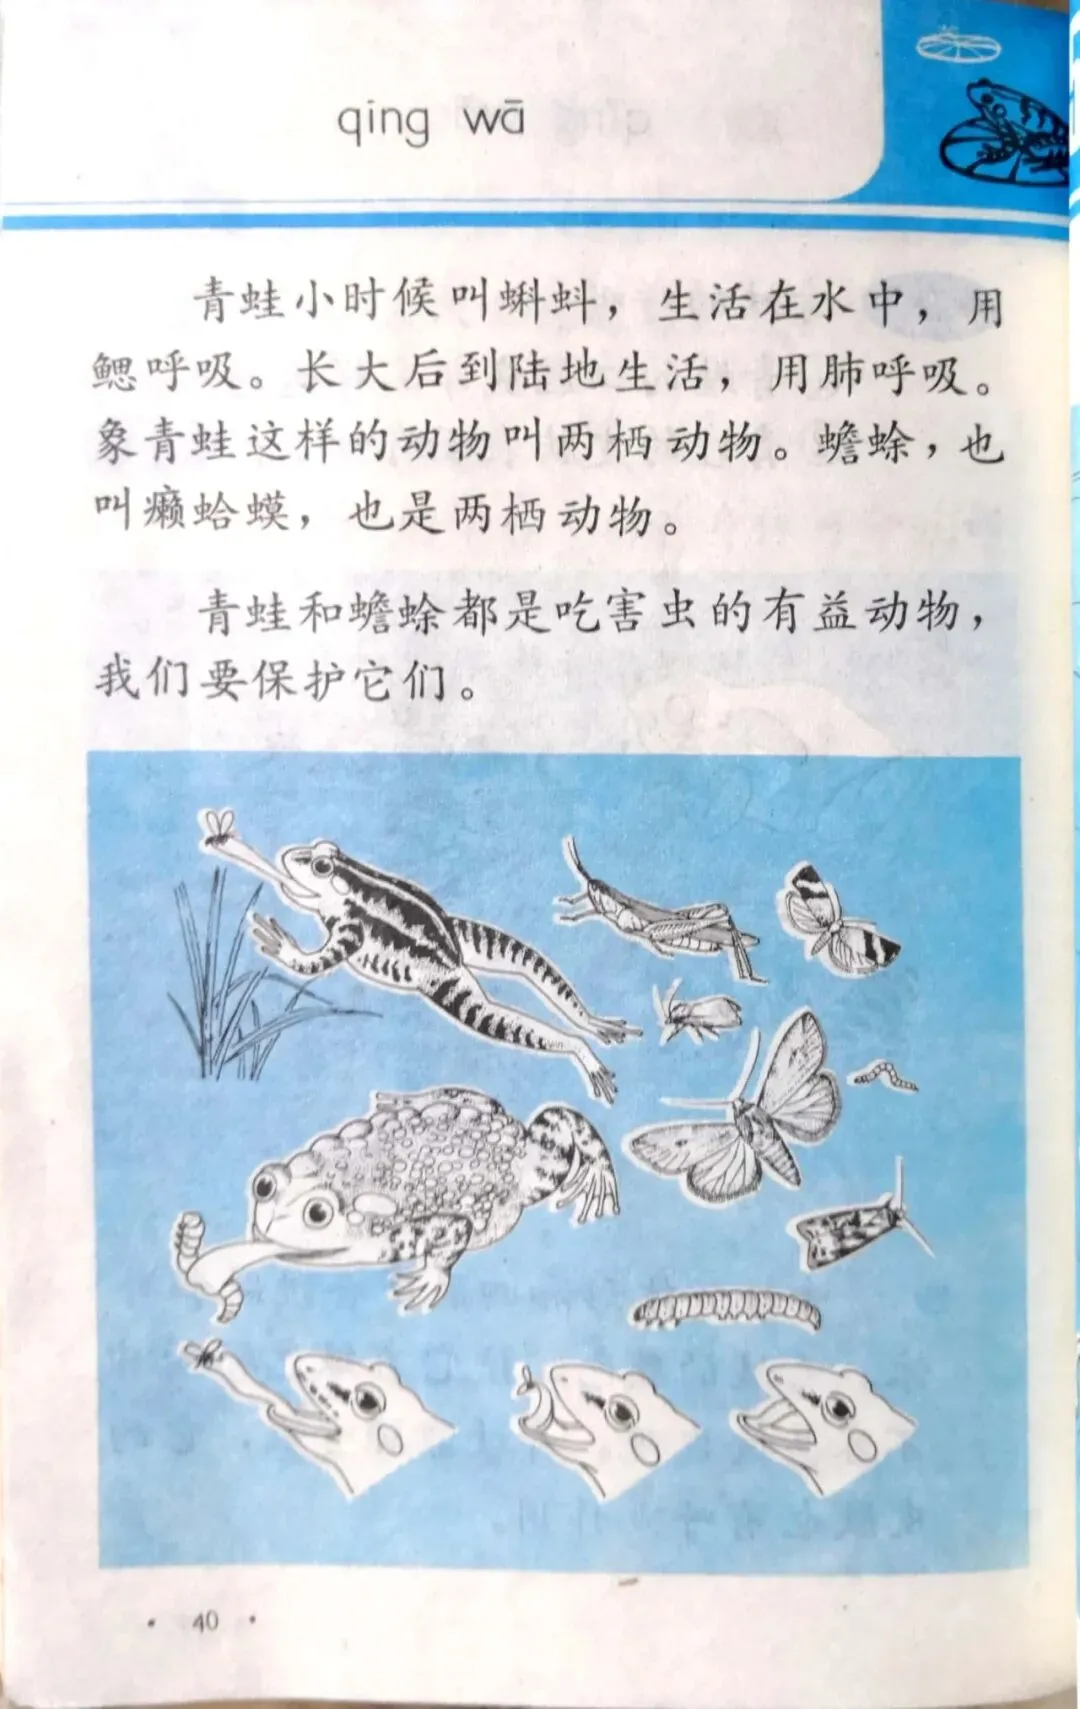 qing wā
青蛙小时候叫蝌蚪，生活在水中，用
鳃呼吸。长大后到陆地生活，用肺呼吸。
象青蛙这样的动物叫两栖动物。蟾蜍，也
叫癞蛤蟆，也是两栖动物。
青蛙和蟾蜍都是吃害虫的有益动物，
我们要保护它们。
· 40 ·